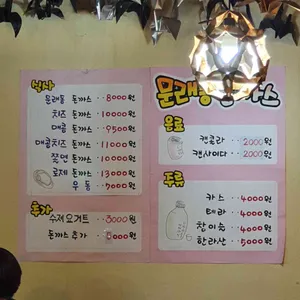 식사
문래동 돈까스 8000원
치즈 돈까스 10000원
매콤 돈까스 9500원
매콤치즈 돈까스 11000원
쫄면 돈까스 11000원
로제 돈까스 13000원
우동 7000원
추가
수제 요거트 3000원
돈까스 추가 000원
문래동 돈까스
음료
캔콜라 2000원
캔사이다 2000원
주류
카스 4000원
테라 4000원
참이슬 4000원
한라산 5000원